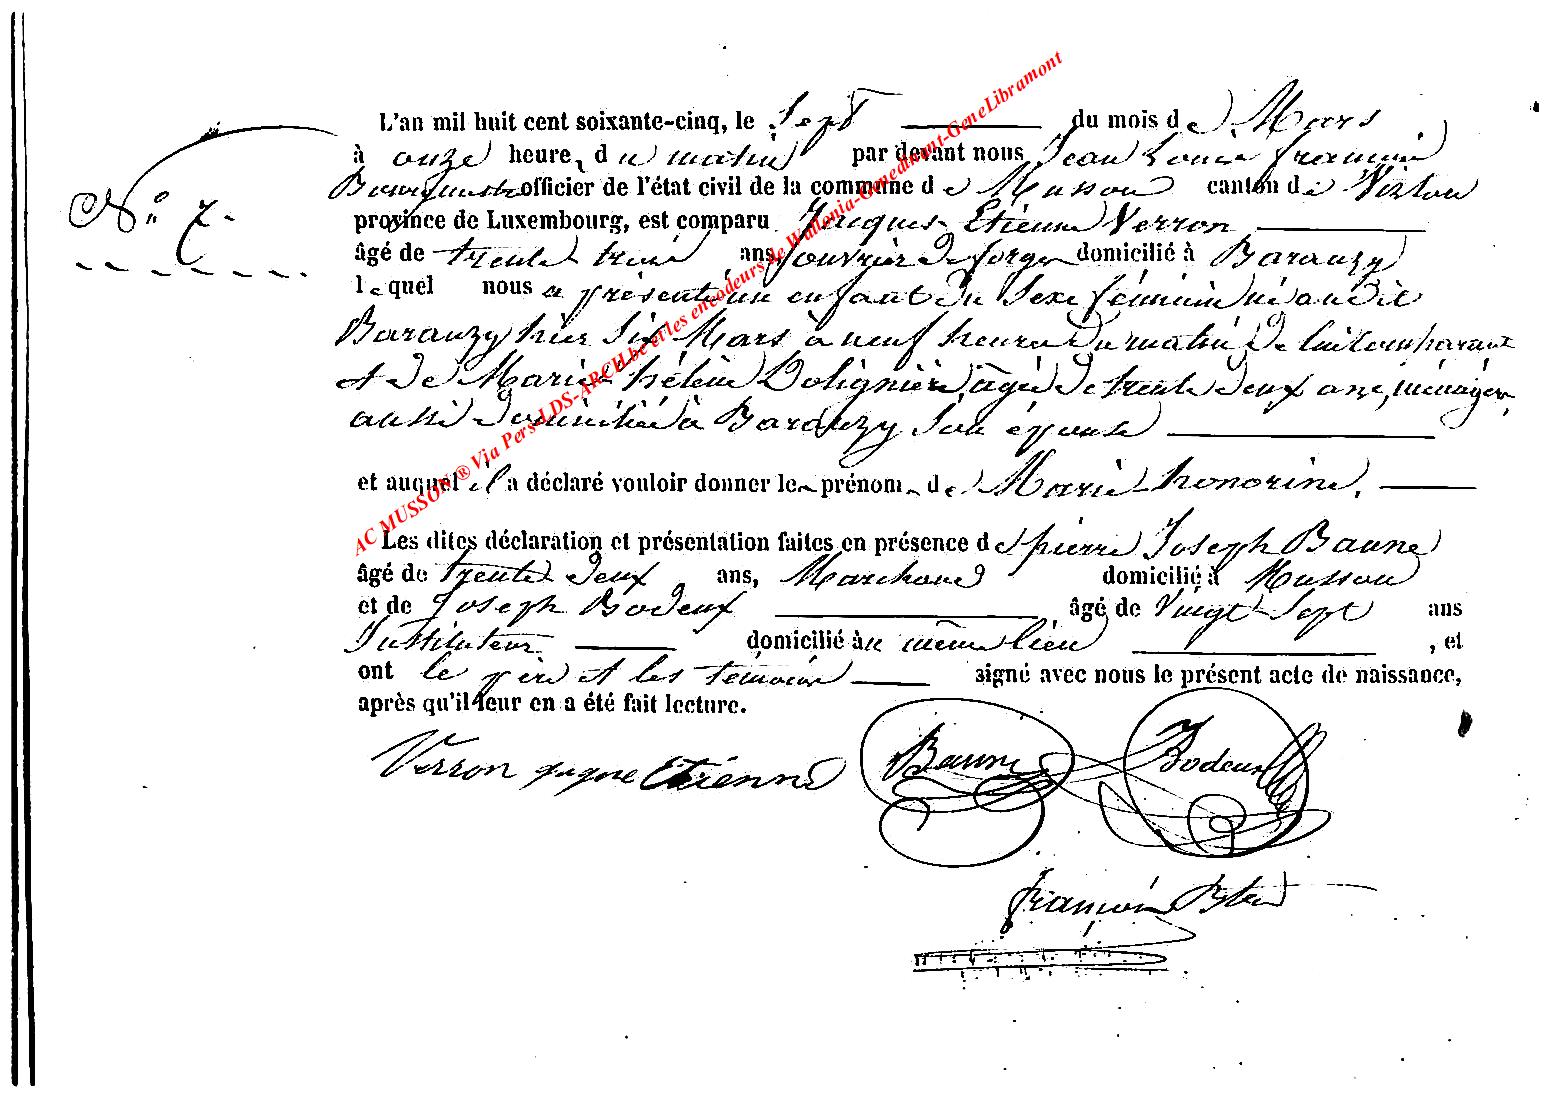 L'an mil huit cent soixante-cinq, le Sept du mois de Mars
à onze heures du matin par devant nous Jean Louis françois
Bourgmestre officier de l'état civil de la commune de Musson canton de Virton
province de Luxembourg, est comparu Jacques Etienne Verron
N° 7.
âgé de trente trois ans, ouvrier de forge domicilié à Baranzy
lequel nous a présenté un enfant du Sexe féminin né au dit
Baranzy hier Six Mars à neuf heures du matin de lui Comparant
et de Marie hélène Dolignière âgée de trente deux ans, ménagère
aussi domiciliée à Baranzy Son épouse
et auquel il a déclaré vouloir donner les prénoms de Marie honorine.
Les dites déclaration et présentation faites en présence de pierre Joseph Baune
âgé de trente deux ans, Marchand domicilié à Musson
et de Joseph Bodeux âgé de Vingt Sept ans
Instituteur domicilié au même lieu, et
ont le père et les témoins signé avec nous le présent acte de naissance,
après qu'il leur en a été fait lecture.
Verron jaque Etienne Baune Bodeux
françois
AC MUSSON ® Via Pers-LDS-ARCH.be et les encodeurs de Wallonia-Genedinant-GeneLibramont